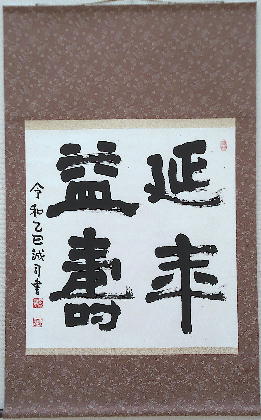 延年
益壽
令和乙巳誠司書